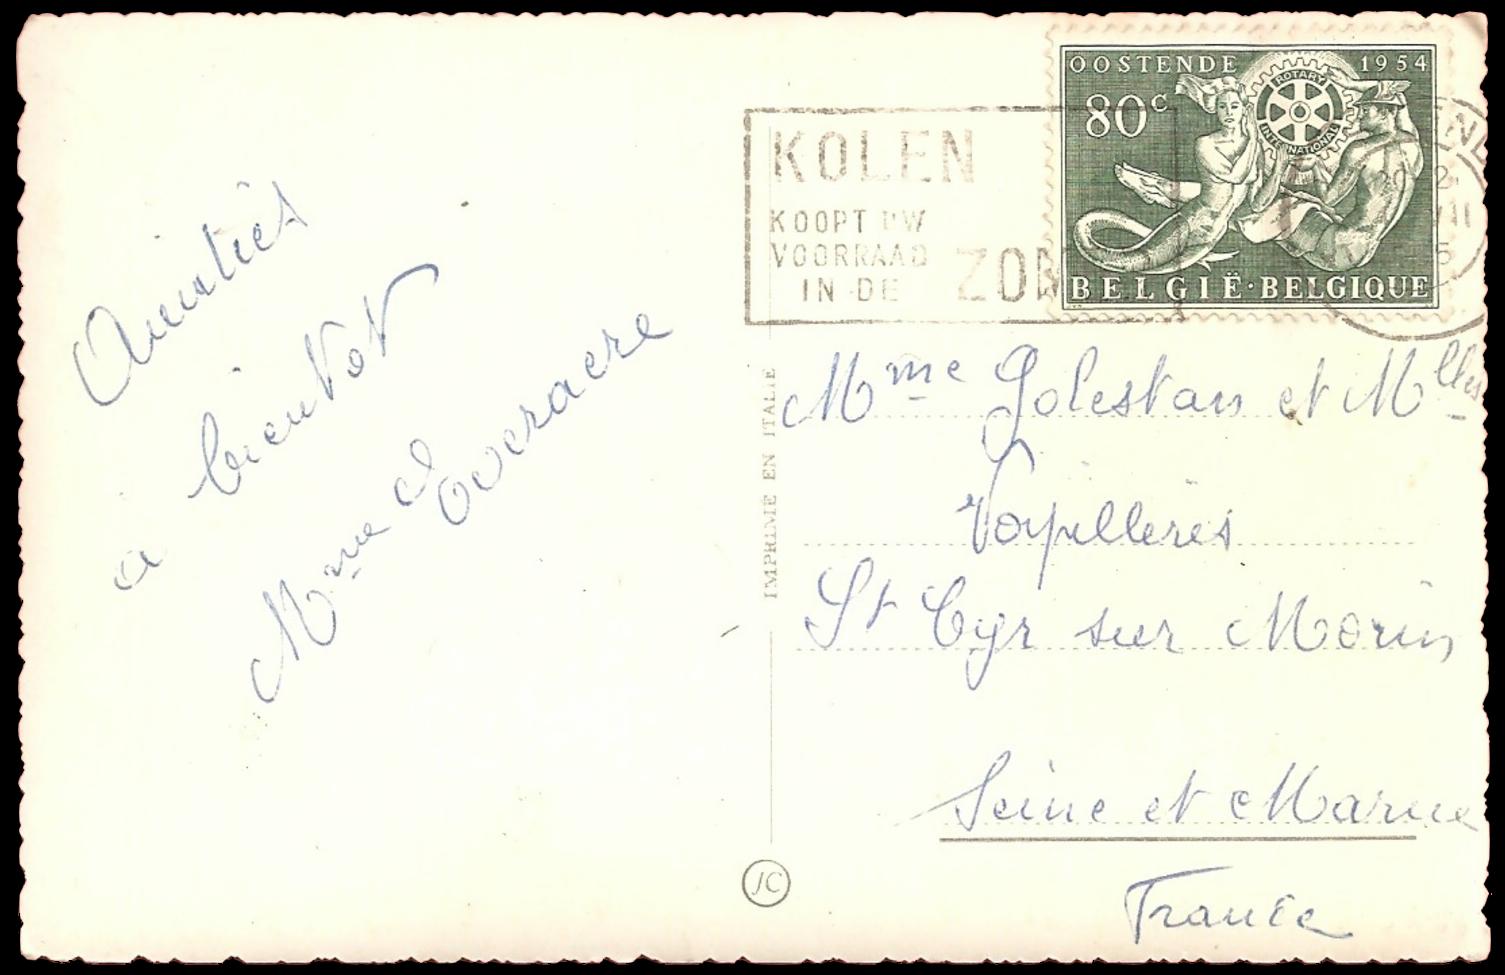 OOSTENDE 1954
80c
ROTARY
INTERNATIONAL
BELGIË·BELGIQUE
KOLEN
KOOPT UW
VOORRAAD
IN DE
Amitiés
à bientôt
Mme Everaere
IMPRIMÉ EN ITALIE
JC
Mme Golestan et Mlles
St Cyr sur Morin
Seine et Marne
France